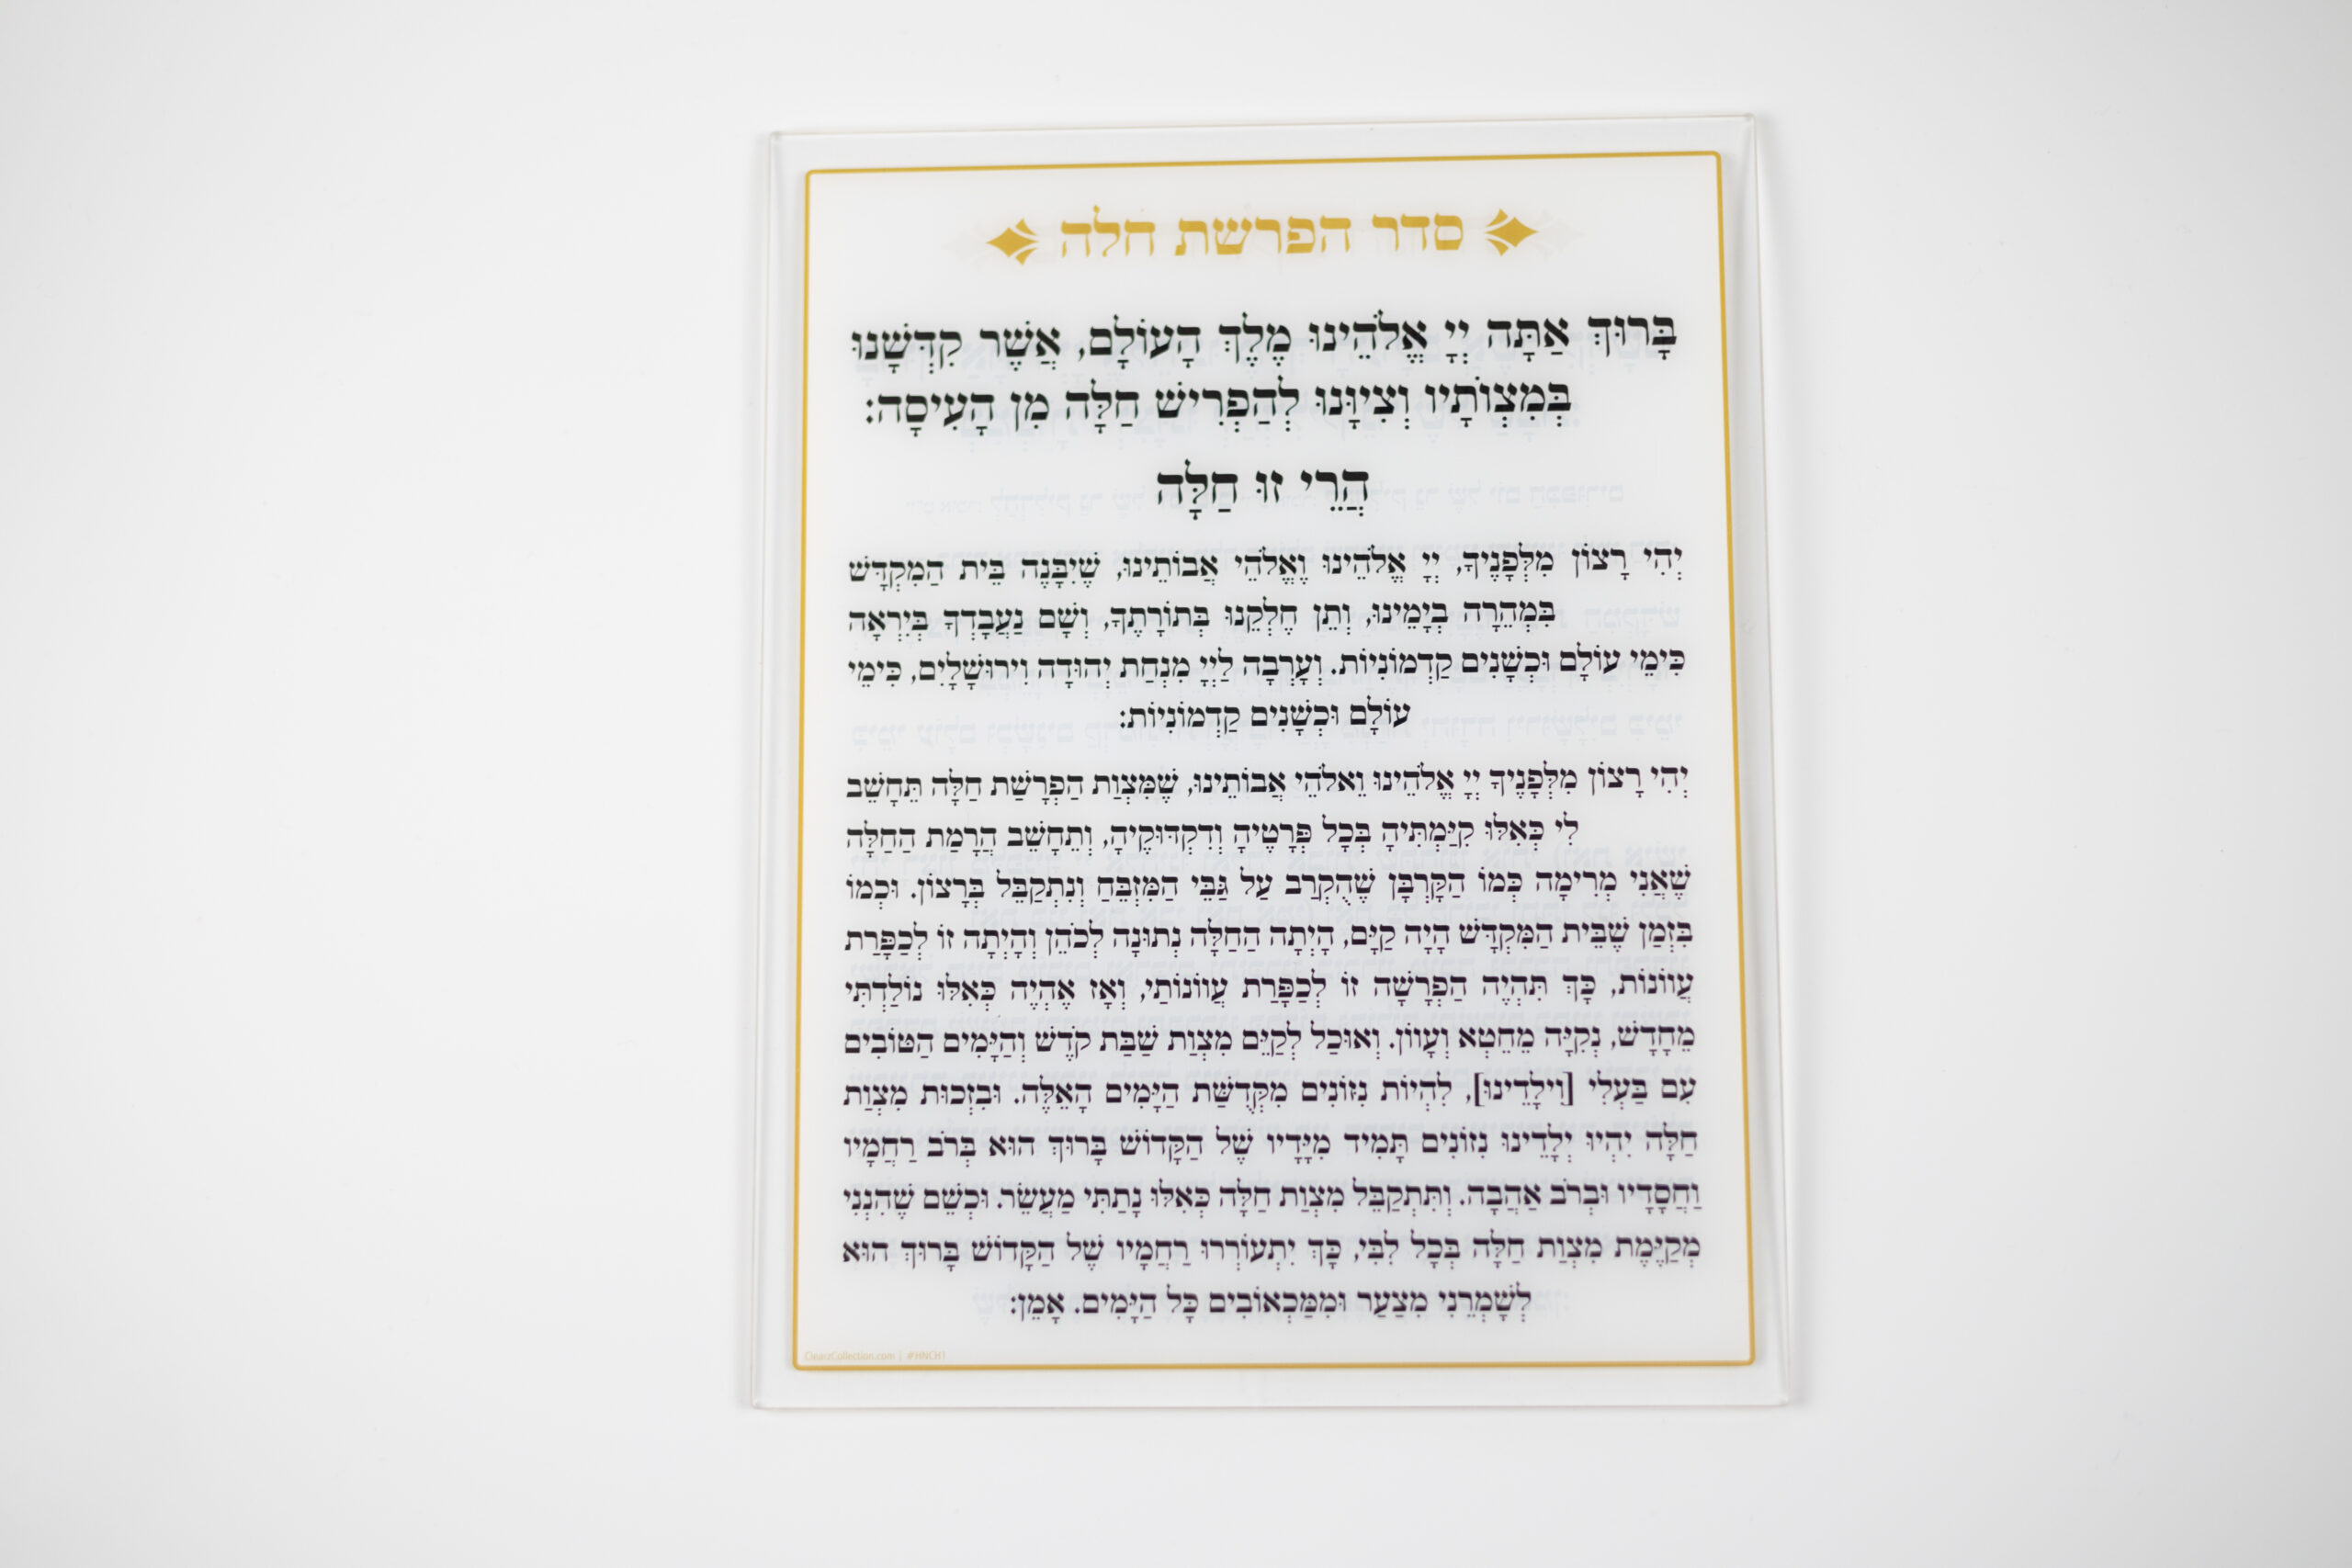 סדר הפרשת חלה
בָּרוּךְ אַתָּה יְיָ אֱלֹהֵינוּ מֶלֶךְ הָעוֹלָם, אֲשֶׁר קִדְּשָׁנוּ
בְּמִצְוֹתָיו וְצִיוָּנוּ לְהַפְרִישׁ חַלָּה מִן הָעִיסָה:
הֲרֵי זוּ חַלָּה
יְהִי רָצוֹן מִלְּפָנֶיךָ, יְיָ אֱלֹהֵינוּ וֶאֱלֹהֵי אֲבוֹתֵינוּ, שֶׁיִּבָּנֶה בֵּית הַמִּקְדָּשׁ
בִּמְהֵרָה בְיָמֵינוּ, וְתֵן חֶלְקֵנוּ בְּתוֹרָתֶךָ, וְשָׁם נַעֲבָדְךָ בְּיִרְאָה
כִּימֵי עוֹלָם וּכְשָׁנִים קַדְמוֹנִיּוֹת. וְעָרְבָה לַייָ מִנְחַת יְהוּדָה וִירוּשָׁלָיִם, כִּימֵי
עוֹלָם וּכְשָׁנִים קַדְמוֹנִיּוֹת:
יְהִי רָצוֹן מִלְּפָנֶיךָ יְיָ אֱלֹהֵינוּ וֵאלֹהֵי אֲבוֹתֵינוּ, שֶׁמִּצְוַת הַפְרָשַׁת חַלָּה תֵּחָשֵׁב
לִי כְּאִלּוּ קִיַּמְתִּיהָ בְּכָל פְּרָטֶיהָ וְדִקְדּוּקֶיהָ, וְתֵחָשֵׁב הֲרָמַת הַחַלָּה
שֶׁאֲנִי מְרִימָה כְּמוֹ הַקָּרְבָּן שֶׁהֻקְרַב עַל גַּבֵּי הַמִּזְבֵּחַ וְנִתְקַבֵּל בְּרָצוֹן. וּכְמוֹ
בִּזְמַן שֶׁבֵּית הַמִּקְדָּשׁ הָיָה קַיָּם, הָיְתָה הַחַלָּה נְתוּנָה לְכֹהֵן וְהָיְתָה זוֹ לְכַפָּרַת
עֲווֹנוֹת, כָּךְ תִּהְיֶה הַפְרָשָׁה זוֹ לְכַפָּרַת עֲווֹנוֹתַי, וְאָז אֶהְיֶה כְּאִלּוּ נוֹלַדְתִּי
מֵחָדָשׁ, נְקִיָּה מֵחֵטְא וְעָווֹן. וְאוּכַל לְקַיֵּם מִצְוַת שַׁבַּת קֹדֶשׁ וְהַיָּמִים הַטּוֹבִים
עִם בַּעְלִי [וִילָדֵינוּ], לִהְיוֹת נִזּוֹנִים מִקְּדֻשַּׁת הַיָּמִים הָאֵלֶּה. וּבִזְכוּת מִצְוַת
חַלָּה יִהְיוּ יְלָדֵינוּ נִזּוֹנִים תָּמִיד מִיָּדָיו שֶׁל הַקָּדוֹשׁ בָּרוּךְ הוּא בְּרֹב רַחֲמָיו
וַחֲסָדָיו וּבְרֹב אַהֲבָה. וְתִתְקַבֵּל מִצְוַת חַלָּה כְּאִלּוּ נָתַתִּי מַעֲשֵׂר. וּכְשֵׁם שֶׁהִנְנִי
מְקַיֶּמֶת מִצְוַת חַלָּה בְּכָל לִבִּי, כָּךְ יִתְעוֹרְרוּ רַחֲמָיו שֶׁל הַקָּדוֹשׁ בָּרוּךְ הוּא
לְשָׁמְרֵנִי מִצַּעַר וּמִמַּכְאוֹבִים כָּל הַיָּמִים. אָמֵן:
ClearzCollection.com | #HNCH1